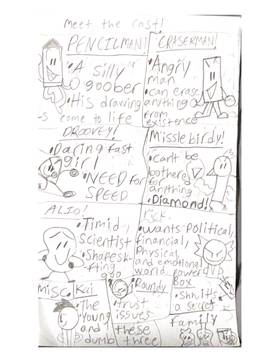 meet the cast!
PENCILMAN!
• A silly goober
• His drawings come to life
ERASERMAN!
• Angry man
• can erase anything from existence
DROOVEY!
• Daring fast girl
• NEED for SPEED
Missle birdy!
• can't be bothered for anything
• Diamond!
ALIO!
• Timid, scientist
• Shapeskifting
Rick.
• wants Political, financial, Physical, and emotional world power
Misc.
Kai
• The young and dumb
Dandy
• trust issues
Box
• Shhh it's a secret
these three
Family